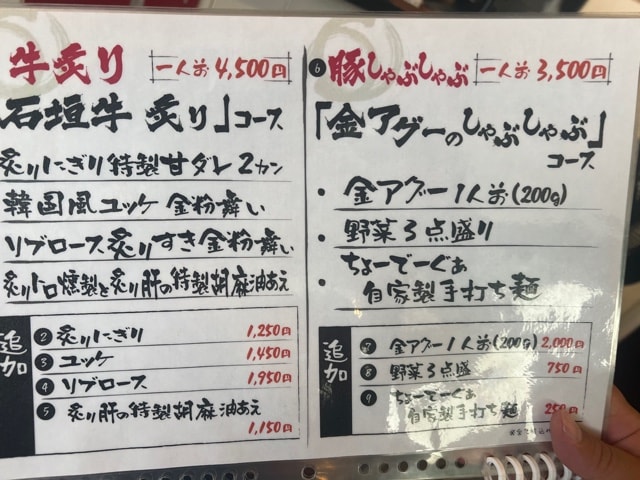 牛炙り 一人前4,500円
石垣牛 炙り」コース
炙りにぎり特製甘ダレ2カン
韓国風ユッケ 金粉舞い
リブロース炙りすき金粉舞い
炙りトロ燻製と炙り肝の特製胡麻油あえ
追加
② 炙りにぎり 1,250円
③ ユッケ 1,450円
④ リブロース 1,950円
⑤ 炙り肝の特製胡麻油あえ
1,150円
⑥ 豚しゃぶしゃぶ 一人前3,500円
「金アグーのしゃぶしゃぶ」
コース
・ 金アグー1人前(200g)
・ 野菜3点盛り
・ ちょーでーぐぁ
自家製手打ち麺
追加
⑦ 金アグー1人前(200g) 2,000円
⑧ 野菜3点盛 750円
⑨ ちょーでーぐぁ
自家製手打ち麺 250円